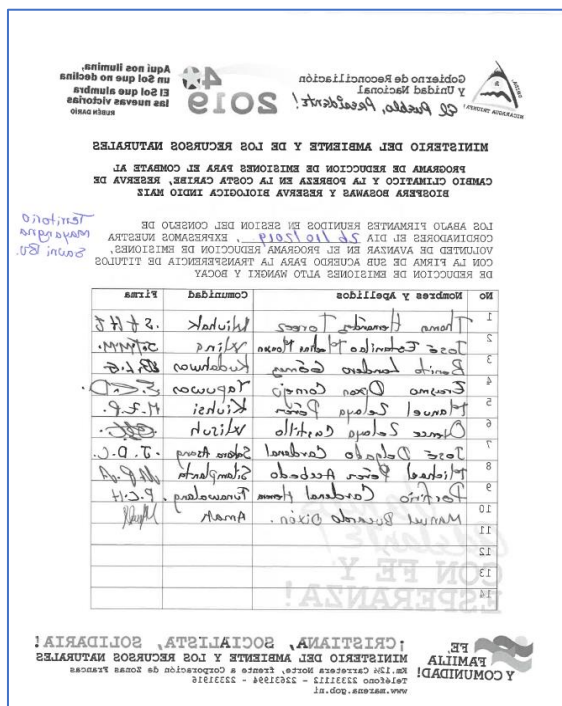 Gobierno de Reconciliación
y Unidad Nacional
El Pueblo, Presidente!
40
2019
Aquí nos ilumina,
un Sol que no declina
El Sol que alumbra
las nuevas victorias
RUBÉN DARÍO
MINISTERIO DEL AMBIENTE Y DE LOS RECURSOS NATURALES
PROGRAMA DE REDUCCION DE EMISIONES PARA EL COMBATE AL
CAMBIO CLIMATICO Y LA POBREZA EN LA COSTA CARIBE, RESERVA DE
BIOSFERA BOSAWAS Y RESERVA BIOLOGICA INDIO MAIZ
Territorio
Mayangna
Sauni Bu.
LOS ABAJO FIRMANTES REUNIDOS EN SESION DEL CONSEJO DE
CORDINADORES EL DIA 26/10/2019, EXPRESAMOS NUESTRA
VOLUNTED DE AVANZAR EN EL PROGRAMA REDUCCION DE EMISIONES,
CON LA FIRMA DE SUB ACUERDO PARA LA TRANSFERENCIA DE TITULOS
DE REDUCCION DE EMISIONES ALTO WANGKI Y BOCAY
No Nombres y Apellidos Comunidad Firma
1 Thomas Hernández Torrez Wiuhak
2 José Estanilao Wina
3 Benito Landero Gómez
4 Erasmo Dixon Cornejo Tapuwas
5 Manuel Zelaya Pérez Kiuhsi M.Z.P.
6 Zelaya Castillo Wlisuh
7 José Delgado Cardenal Sakam Asang J.D.C.
8 Michael Pérez Acebedo Sitamplanta M.P.A
9 Porfirio Cardenal Tunawalang P.C.H
10 Manuel Bucardo Dixón. Amak
11
12
13
14
CON FE Y
ESPERANZA!
FE,
FAMILIA
Y COMUNIDAD!
¡CRISTIANA, SOCIALISTA, SOLIDARIA!
MINISTERIO DEL AMBIENTE Y LOS RECURSOS NATURALES
Km.12½ Carretera Norte, frente a Corporación de Zonas Francas
Teléfono 22331112 - 22631994 - 22331916
www.marena.gob.ni